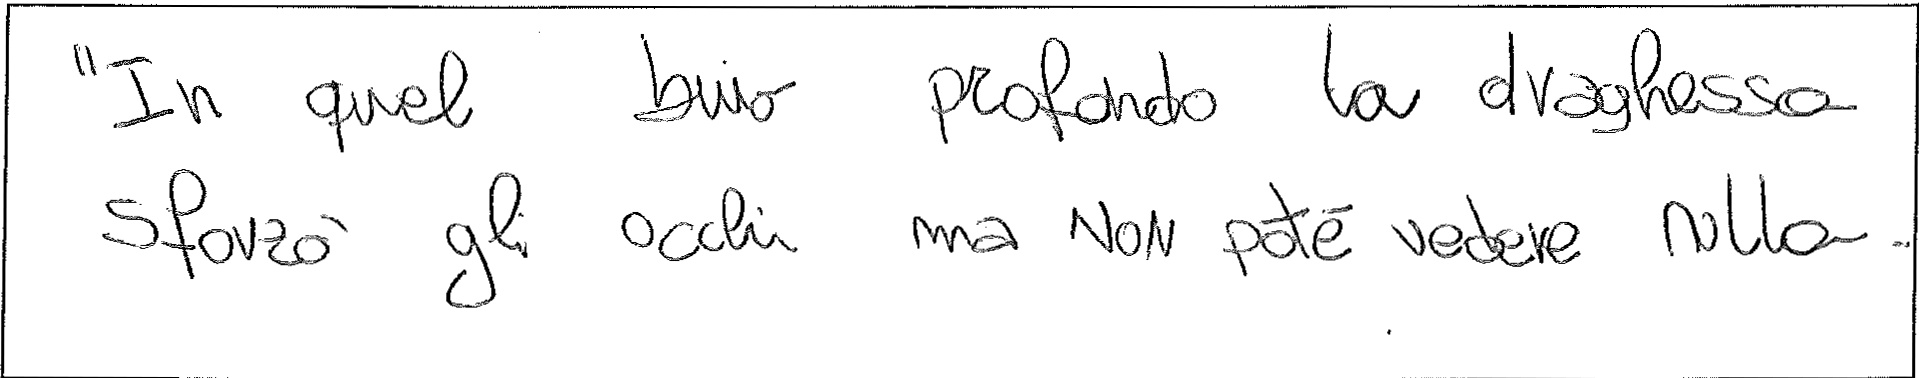 "In quel buio profondo la draghessa
sforzò gli occhi ma NON poté vedere nulla.